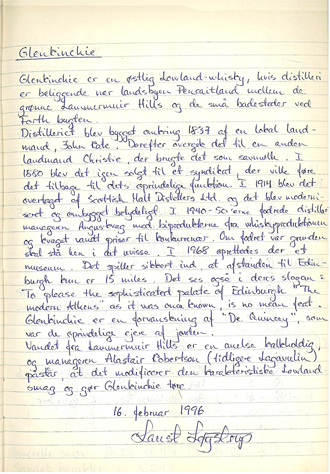 Glenkinchie
Glenkinchie er en østlig Lowland-whisky, hvis distilleri
er beliggende nær landsbyen Pencaitland mellem de
grønne Lammermuir Hills og de små badesteder ved
Forth bugten.
Distilleriet blev bygget omkring 1837 af en lokal land-
mand, John Rate. Derefter overgik det til en anden
landmand Christie, der brugte det som savmølle. I
1880 blev det igen solgt til et syndikat, der ville føre
det tilbage til dets oprindelige funktion. I 1914 blev det
overtaget af Scottish Malt Distillers Ltd. og det blev moderni-
seret og ombygget betydeligt. I 1940-50'erne fodrede distilleri
manageren Anguskvæg med biprodukterne fra whiskyproduktionen
og kvæget vandt priser til konkurrencer. Om fodret var grunden
skal stå hen i det uvisse. I 1968 oprettedes der et
museum. Det spiller sikkert ind, at afstanden til Edin-
burgh kun er 15 miles. Det ses også i deres slogan:
"To please the sophisticated palate of Edinburgh "The
modern Athens" as it was once known, is no mean feat.
Glenkinchie er en forvanskning af "De Quincey", som
var de oprindelige ejere af jorden.
Vandet fra Lammermuir Hills er en anelse kalkholdig,
og manageren Alastair Robertson (tidligere Lagavulin)
påstår, at det modificerer den karakteristiske Lowland
smag og gør Glenkinchie tør.
16. februar 1996